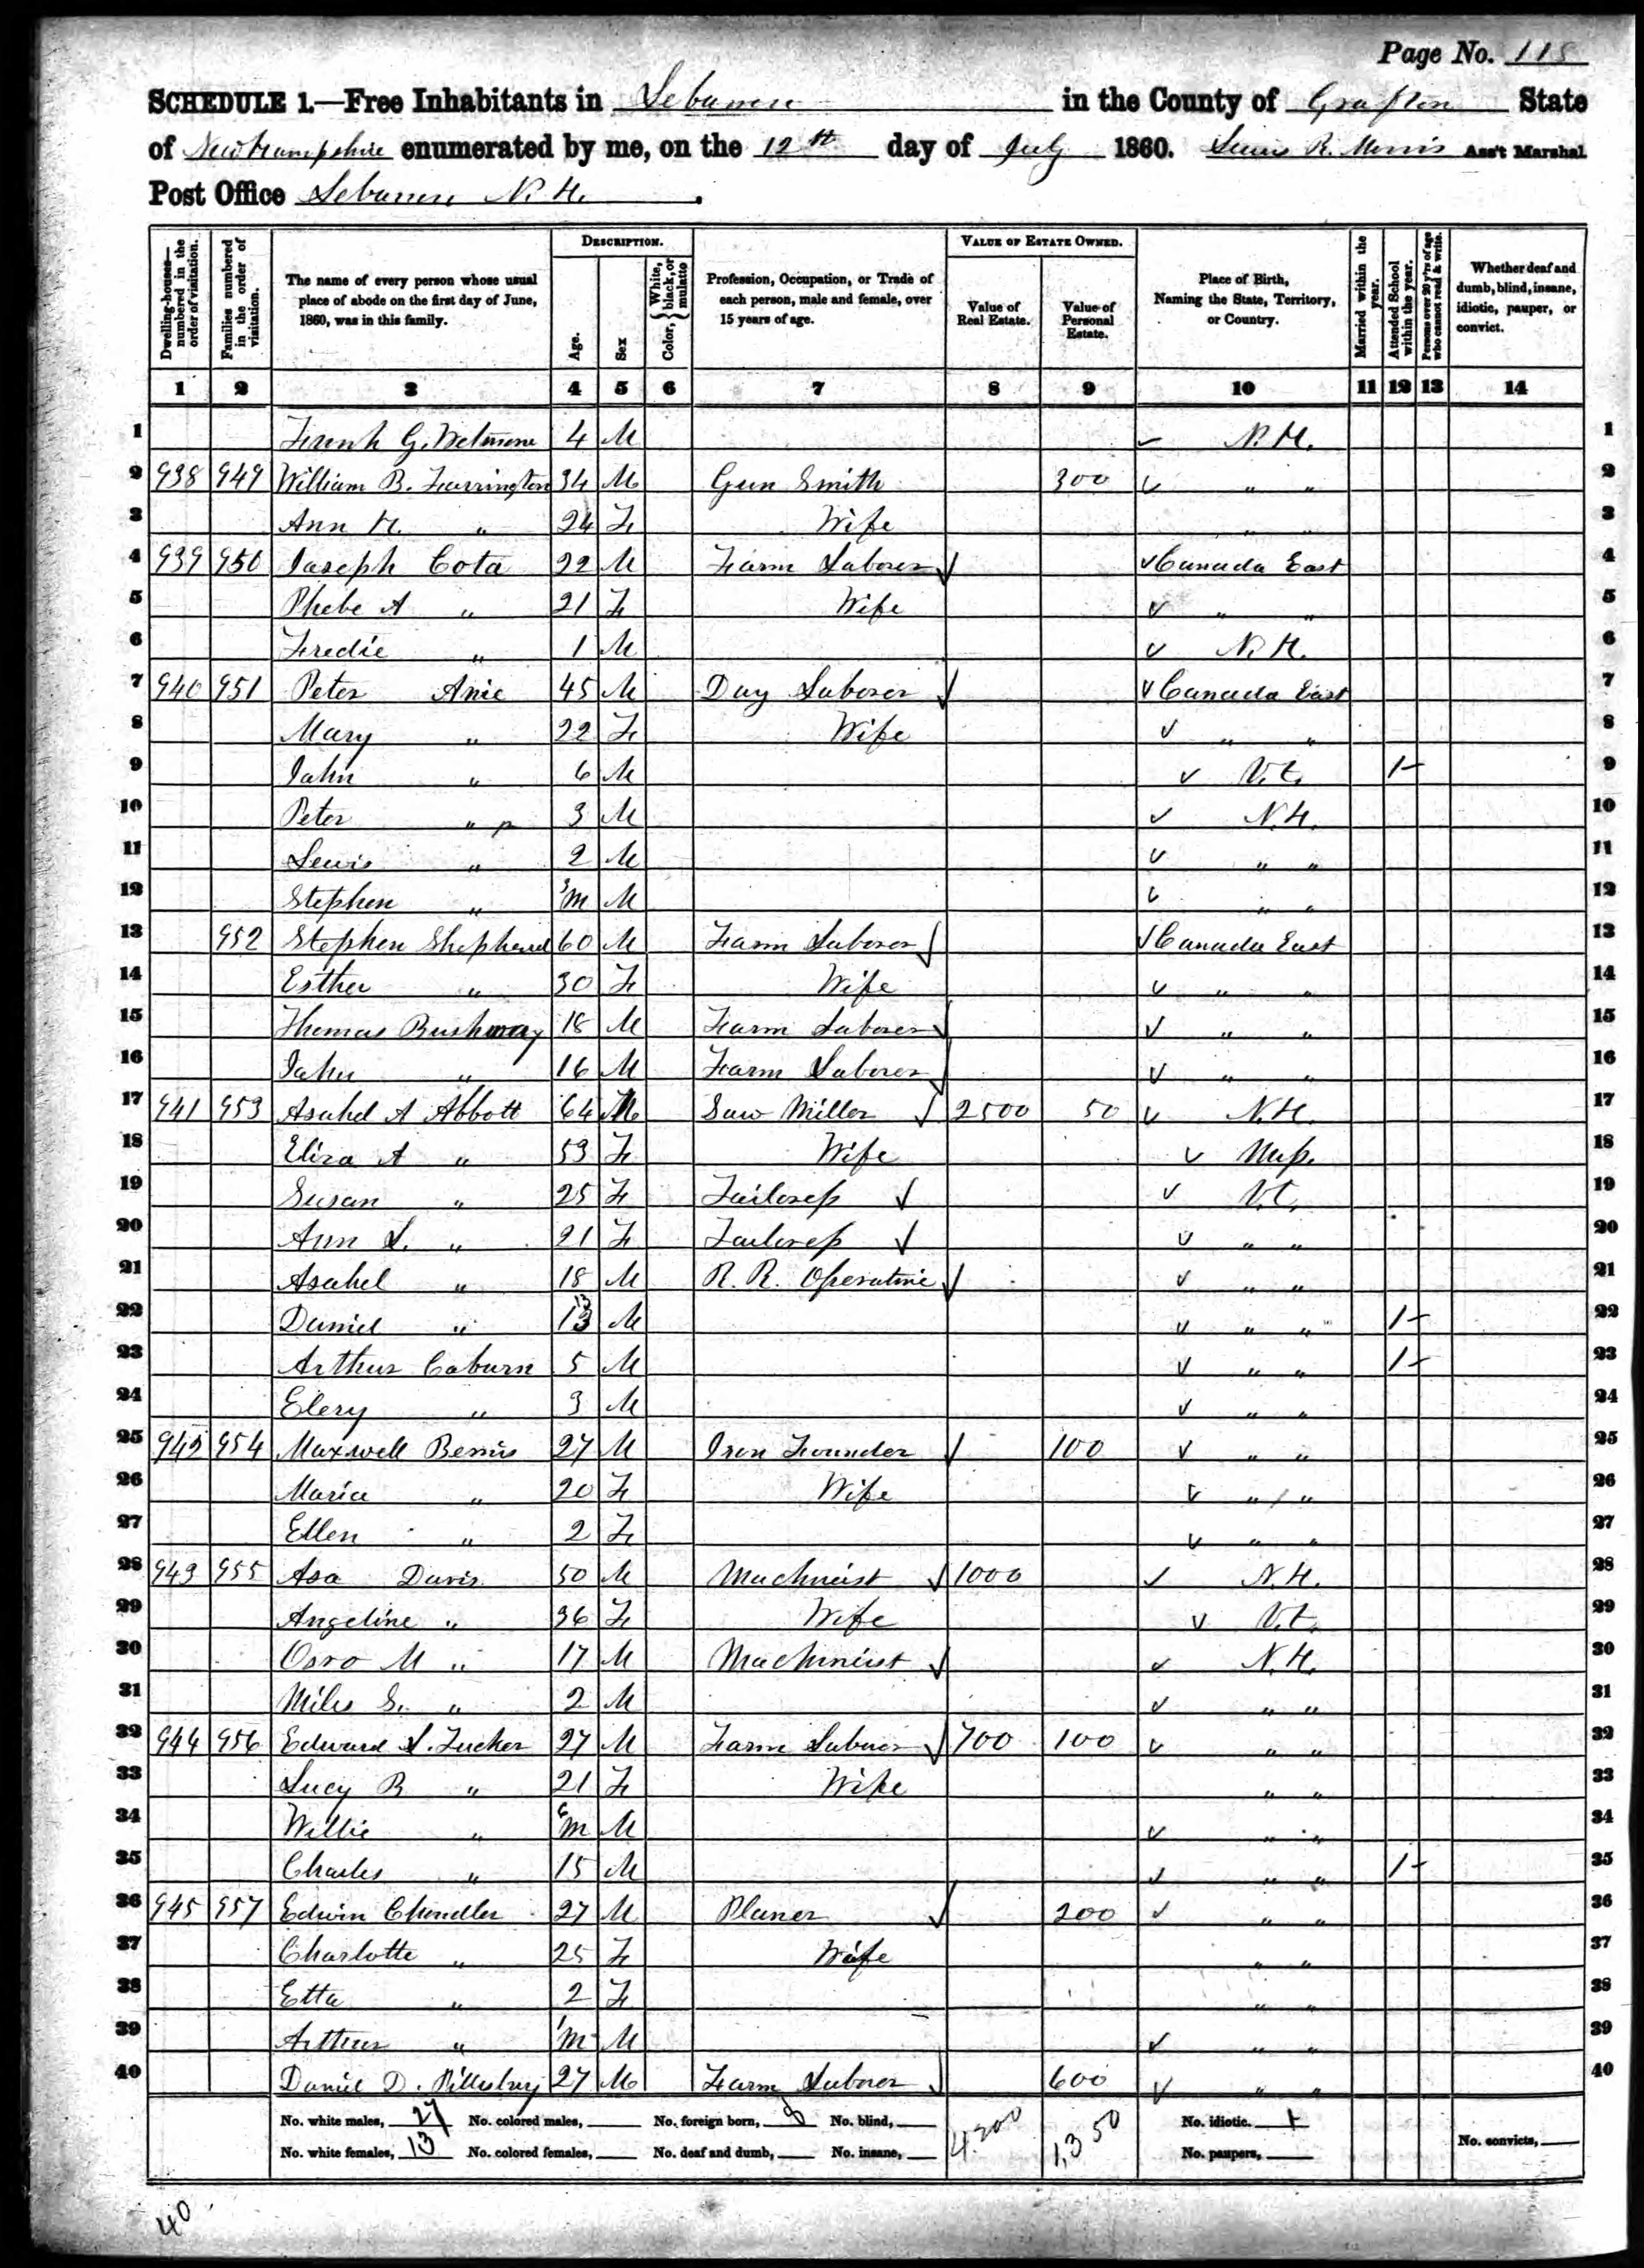 Page No. 118
SCHEDULE 1.—Free Inhabitants in Lebanon in the County of Grafton State
of New Hampshire enumerated by me, on the 12th day of July 1860. Lewis R. Morris Ass't Marshal
Post Office Lebanon N. H.
Dwelling-houses—numbered in the order of visitation. Families numbered in the order of visitation. The name of every person whose usual place of abode on the first day of June, 1860, was in this family. DESCRIPTION. Age. Sex Color, { White, black, or mulatto Profession, Occupation, or Trade of each person, male and female, over 15 years of age. VALUE OF ESTATE OWNED. Value of Real Estate. Value of Personal Estate. Place of Birth, Naming the State, Territory, or Country. Married within the year. Attended School within the year. Persons over 20 y'rs of age who cannot read & write. Whether deaf and dumb, blind, insane, idiotic, pauper, or convict.
1 2 3 4 5 6 7 8 9 10 11 12 13 14
1 Frank G. Wetmore 4 M N. H. 1
2 938 949 William B. Farrington 34 M Gun Smith 300 " " 2
3 Ann H. " 24 F Wife " " 3
4 939 950 Joseph Cota 22 M Farm Laborer Canada East 4
5 Phebe A " 21 F Wife " " 5
6 Fredie " 1 M N. H. 6
7 940 951 Peter Anie 45 M Day Laborer Canada East 7
8 Mary " 22 F Wife " " 8
9 John " 6 M V.t. 1 9
10 Peter " 3 M N.H. 10
11 Lewis " 2 M " " 11
12 Stephen " 3/m M " " 12
13 952 Stephen Shepherd 60 M Farm Laborer Canada East 13
14 Esther " 30 F Wife " " 14
15 Thomas Bushway 18 M Farm Laborer " " 15
16 John " 16 M Farm Laborer " " 16
17 941 953 Asahel A Abbott 64 M Saw Miller 2500 50 N.H. 17
18 Eliza A " 53 F Wife Mass. 18
19 Susan " 25 F Tailoress V.t. 19
20 Ann L. " 21 F Tailoress " " 20
21 Asahel " 18 M R. R. Operative " " 21
22 Daniel " 13 M " " 1 22
23 Arthur Coburn 5 M " " 1 23
24 Elery " 3 M " " 24
25 942 954 Maxwell Bemis 27 M Iron Founder 100 " " 25
26 Maria " 20 F Wife " " 26
27 Ellen " 2 F " " 27
28 943 955 Asa Davis 50 M Machneist 1000 N.H. 28
29 Angeline " 36 F Wife V.t. 29
30 Orro M " 17 M Machneist N.H. 30
31 Miles S. " 2 M " " 31
32 944 956 Edward S. Tucker 27 M Farm Laborer 700 100 " " 32
33 Lucy R " 21 F Wife " " 33
34 Willie " 6/m M " " 34
35 Charles " 15 M " " 1 35
36 945 957 Edwin Chandler 27 M Planer 200 " " 36
37 Charlotte " 25 F Wife " " 37
38 Etta " 2 F " " 38
39 Arthur " 1/m M " " 39
40 Daniel D. Pillsbury 27 M Farm Laborer 600 " " 40
No. white males, 27 No. colored males, No. foreign born, 8 No. blind, 4200 1,350 No. idiotic. 1
No. white females, 13 No. colored females, No. deaf and dumb, No. insane, No. paupers, No. convicts,
40